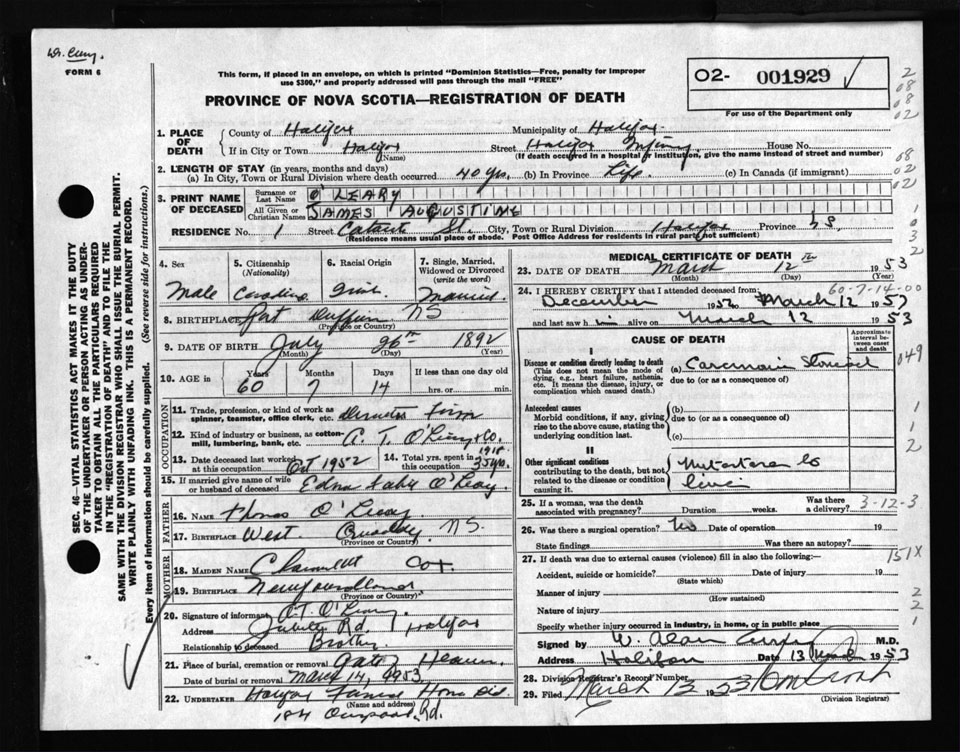 Dr. Curry.
FORM 6
This form, if placed in an envelope, on which is printed "Dominion Statistics—Free, penalty for improper
use $300," and properly addressed will pass through the mail "FREE"
02- 001929
PROVINCE OF NOVA SCOTIA—REGISTRATION OF DEATH
For use of the Department only
1. PLACE OF DEATH
County of Halifax Municipality of Halifax
If in City or Town Halifax (Name) Street Halifax Infirmary House No.
(If death occurred in a hospital or institution, give the name instead of street and number)
2. LENGTH OF STAY (in years, months and days)
(a) In City, Town or Rural Division where death occurred 40 yrs. (b) In Province Life (c) In Canada (if immigrant)
3. PRINT NAME OF DECEASED
Surname or Last Name O'LEARY
All Given or Christian Names JAMES AUGUSTINE
RESIDENCE No. 1 Street St. City, Town or Rural Division Halifax Province N.S.
(Residence means usual place of abode. Post Office Address for residents in rural parts not sufficient)
4. Sex Male
5. Citizenship (Nationality) Canadian
6. Racial Origin Irish
7. Single, Married, Widowed or Divorced (write the word) Married
8. BIRTHPLACE Port Dufferin NS
(Province or Country)
9. DATE OF BIRTH July 26th 1892
(Month) (Day) (Year)
10. AGE in Years 60 Months 7 Days 14 If less than one day old hrs. or min.
OCCUPATION
11. Trade, profession, or kind of work as spinner, teamster, office clerk, etc. Firm
12. Kind of industry or business, as cotton-mill, lumbering, bank, etc. A. T. O'Leary & Co.
13. Date deceased last worked at this occupation Oct 1952
14. Total yrs. spent in this occupation 1918 35 yrs.
15. If married give name of wife or husband of deceased Edna O'Leary
FATHER
16. NAME Thomas O'Leary
17. BIRTHPLACE West Quoddy N.S.
(Province or Country)
MOTHER
18. MAIDEN NAME Cox
19. BIRTHPLACE Newfoundland
(Province or Country)
20. Signature of informant A.T. O'Leary
Address Jubilee Rd. Halifax
Relationship to deceased Brother
21. Place of burial, cremation or removal Gate of Heaven
Date of burial or removal March 14, 1953
22. UNDERTAKER Halifax Funeral Home
(Name and address)
184 Rd.
MEDICAL CERTIFICATE OF DEATH
23. DATE OF DEATH March 12th 1953
(Month) (Day)
60-7-14-00
24. I HEREBY CERTIFY that I attended deceased from:
December 1952 to March 12 1953
and last saw him alive on March 12 1953
CAUSE OF DEATH
Approximate interval between onset and death
I
Disease or condition directly leading to death
(This does not mean the mode of dying, e.g., heart failure, asthenia, etc. It means the disease, injury, or complication which caused death.)
(a) Carcinoma Stomach
due to (or as a consequence of)
Antecedent causes
Morbid conditions, if any, giving rise to the above cause, stating the underlying condition last.
(b)
due to (or as a consequence of)
(c)
II
Other significant conditions
contributing to the death, but not related to the disease or condition causing it.
Metastases to liver
25. If a woman, was the death associated with pregnancy? Duration weeks. Was there a delivery?
3-12-3
26. Was there a surgical operation? No Date of operation 19
State findings Was there an autopsy?
27. If death was due to external causes (violence) fill in also the following:—
151X
Accident, suicide or homicide? (State which) Date of injury 19
Manner of injury
(How sustained)
Nature of injury
Specify whether injury occurred in industry, in home, or in public place
Signed by W. Alan Curry M.D.
Address Halifax Date 13 March 1953
28. Division Registrar's Record Number
29. Filed March 13 1953
(Division Registrar)
SEC. 46—VITAL STATISTICS ACT MAKES IT THE DUTY
OF THE UNDERTAKER OR PERSON ACTING AS UNDER-
TAKER TO OBTAIN ALL THE PARTICULARS REQUIRED
IN THE "REGISTRATION OF DEATH" AND TO FILE THE
SAME WITH THE DIVISION REGISTRAR WHO SHALL ISSUE THE BURIAL PERMIT.
WRITE PLAINLY WITH UNFADING INK. THIS IS A PERMANENT RECORD.
Every item of Information should be carefully supplied. (See reverse side for instructions.)